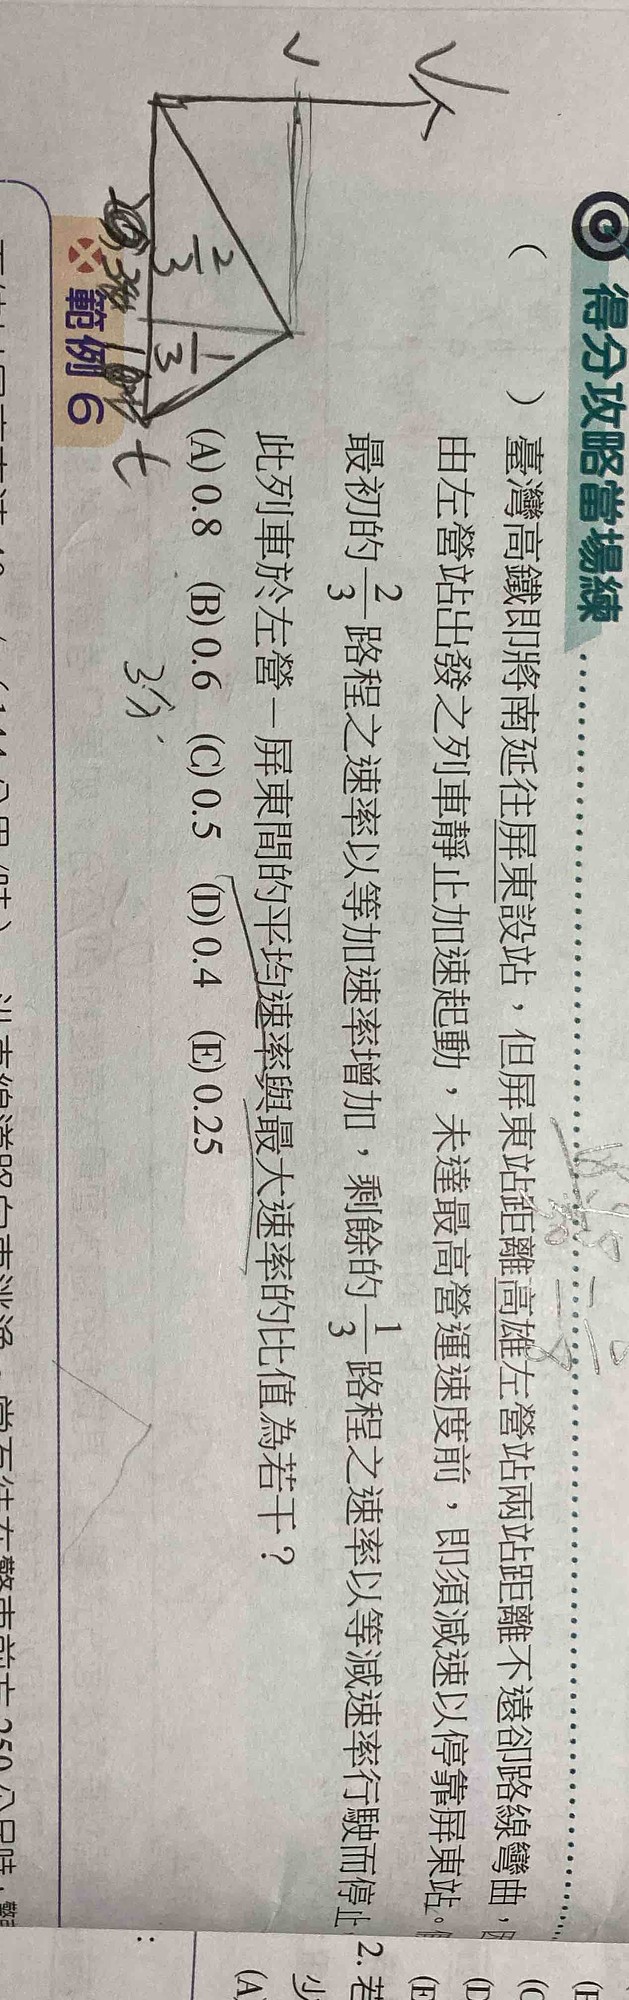 得分攻略當場練
( ) 臺灣高鐵即將南延往屏東設站，但屏東站距離高雄左營站兩站距離不遠卻路線彎曲，
由左營站出發之列車靜止加速起動，未達最高營運速度前，即須減速以停靠屏東站。
最初的2/3路程之速率以等加速率增加，剩餘的1/3路程之速率以等減速率行駛而停止
此列車於左營－屏東間的平均速率與最大速率的比值為若干？
(A)0.8 (B)0.6 (C)0.5 (D)0.4 (E)0.25
V
v
2/3
1/3
t
3分
範例 6
2.若
少
(A)
(E
(D
(C